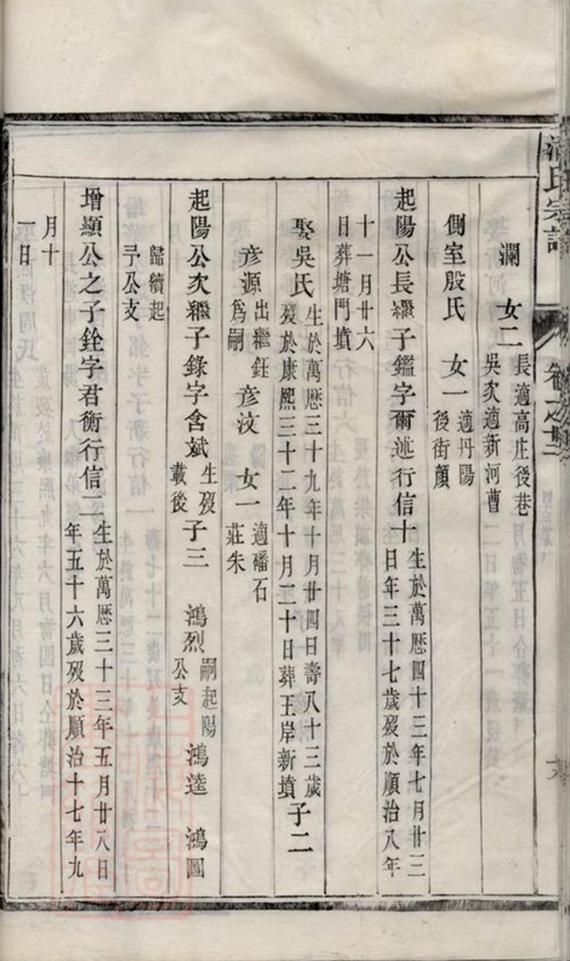 氏宗譜
瀾 女二 長適高庄後巷吳次適新河曹
側室殷氏 女一 適丹陽後街顏
起陽公長繼子鑑字爾述行信十 生於萬厯四十三年七月廿三日年三十七歲歿於順治八年
十一月廿六日葬塘門墳
娶吳氏 生於萬厯三十九年十月廿四日壽八十三歲歿於康熙三十二年十月二十日葬王岸新墳 子二
彥源 出繼鈺為嗣 彥汶 女一 適磻石莊朱
起陽公次繼子錄字含斌 生歿載後 子三 鴻烈 嗣起陽公支 鴻逵 鴻圖
歸續起予公支
增顯公之子銓字君衡行信一 生於萬厯三十三年五月廿八日年五十六歲歿於順治十七年九
月十一日